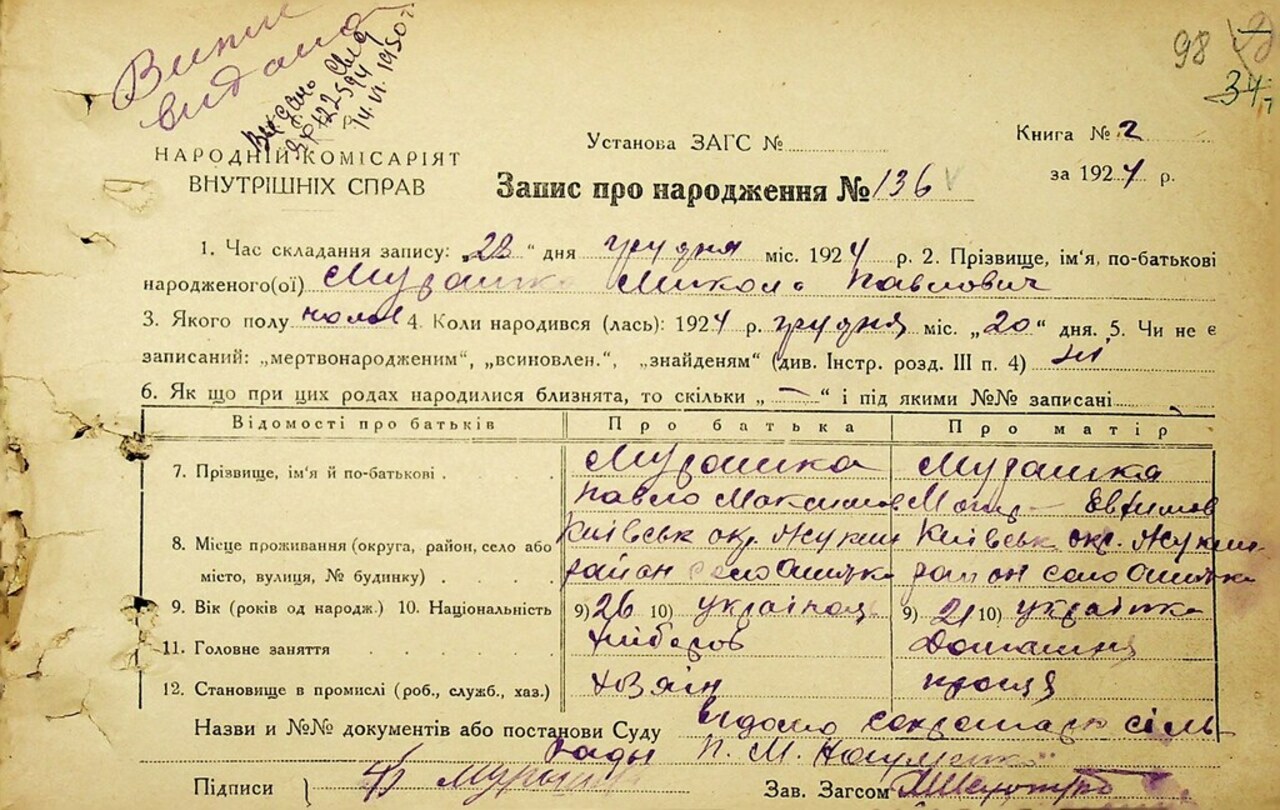 Випис
видано
Видано Свид
14.VI.1950 г.
98
34
НАРОДНІЙ КОМІСАРІЯТ
ВНУТРІШНІХ СПРАВ
Установа ЗАГС №
Книга № 2
за 1924 р.
Запис про народження № 136
1. Час складання запису: „28“ дня грудня міс. 1924 р. 2. Прізвище, ім'я, по-батькові
народженого(ої) Мурашко Микола Павлович
3. Якого полу чолов 4. Коли народився (лась): 1924 р. грудня міс. „20“ дня. 5. Чи не є
записаний: „мертвонародженим“, „всиновлен.“, „знайденям“ (див. Інстр. розд. III п. 4) ні
6. Як що при цих родах народилися близнята, то скільки „—“ і під якими №№ записані
Відомості про батьків Про батька Про матір
7. Прізвище, ім'я й по-батькові Мурашка Мурашка
Павло Максимов Евтимов
8. Місце проживання (округа, район, село або Київськ окр. Жукин Київськ окр. Жукин
місто, вулиця, № будинку) район село район село
9. Вік (років од народж.) 10. Національність 9) 26 10) українець 9) 21 10) українка
11. Головне заняття хлібороб домашня
12. Становище в промислі (роб., служб., хаз.) хозяін праця
Назви и №№ документів або постанови Суду відомо секретарю сіль
ради П. М. Науменко
Підписи Мурашко Зав. Загсом